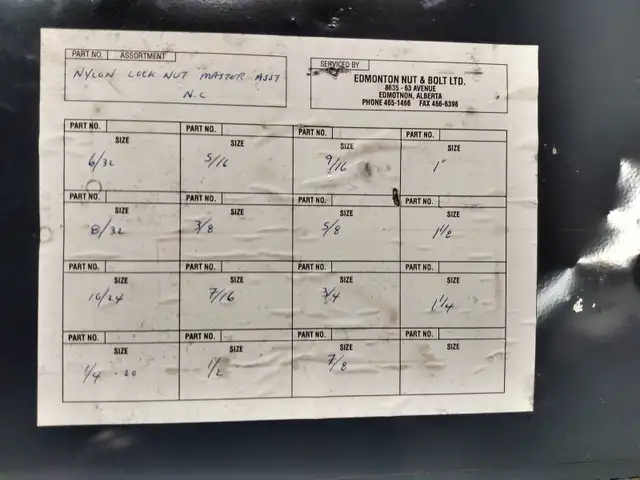 PART NO. ASSORTMENT
NYLON LOCK NUT MASTER ASST
N.C
SERVICED BY
EDMONTON NUT & BOLT LTD.
8635 - 63 AVENUE
EDMOTNON, ALBERTA
PHONE 465-1466 FAX 466-6398
PART NO. PART NO. PART NO. PART NO.
SIZE SIZE SIZE SIZE
6/32 5/16 9/16 1"
PART NO. PART NO. PART NO. PART NO.
SIZE SIZE SIZE SIZE
8/32 3/8 5/8 1 1/8
PART NO. PART NO. PART NO. PART NO.
SIZE SIZE SIZE SIZE
10/24 7/16 3/4 1 1/4
PART NO. PART NO. PART NO. PART NO.
SIZE SIZE SIZE SIZE
1/4 - 20 1/2 7/8